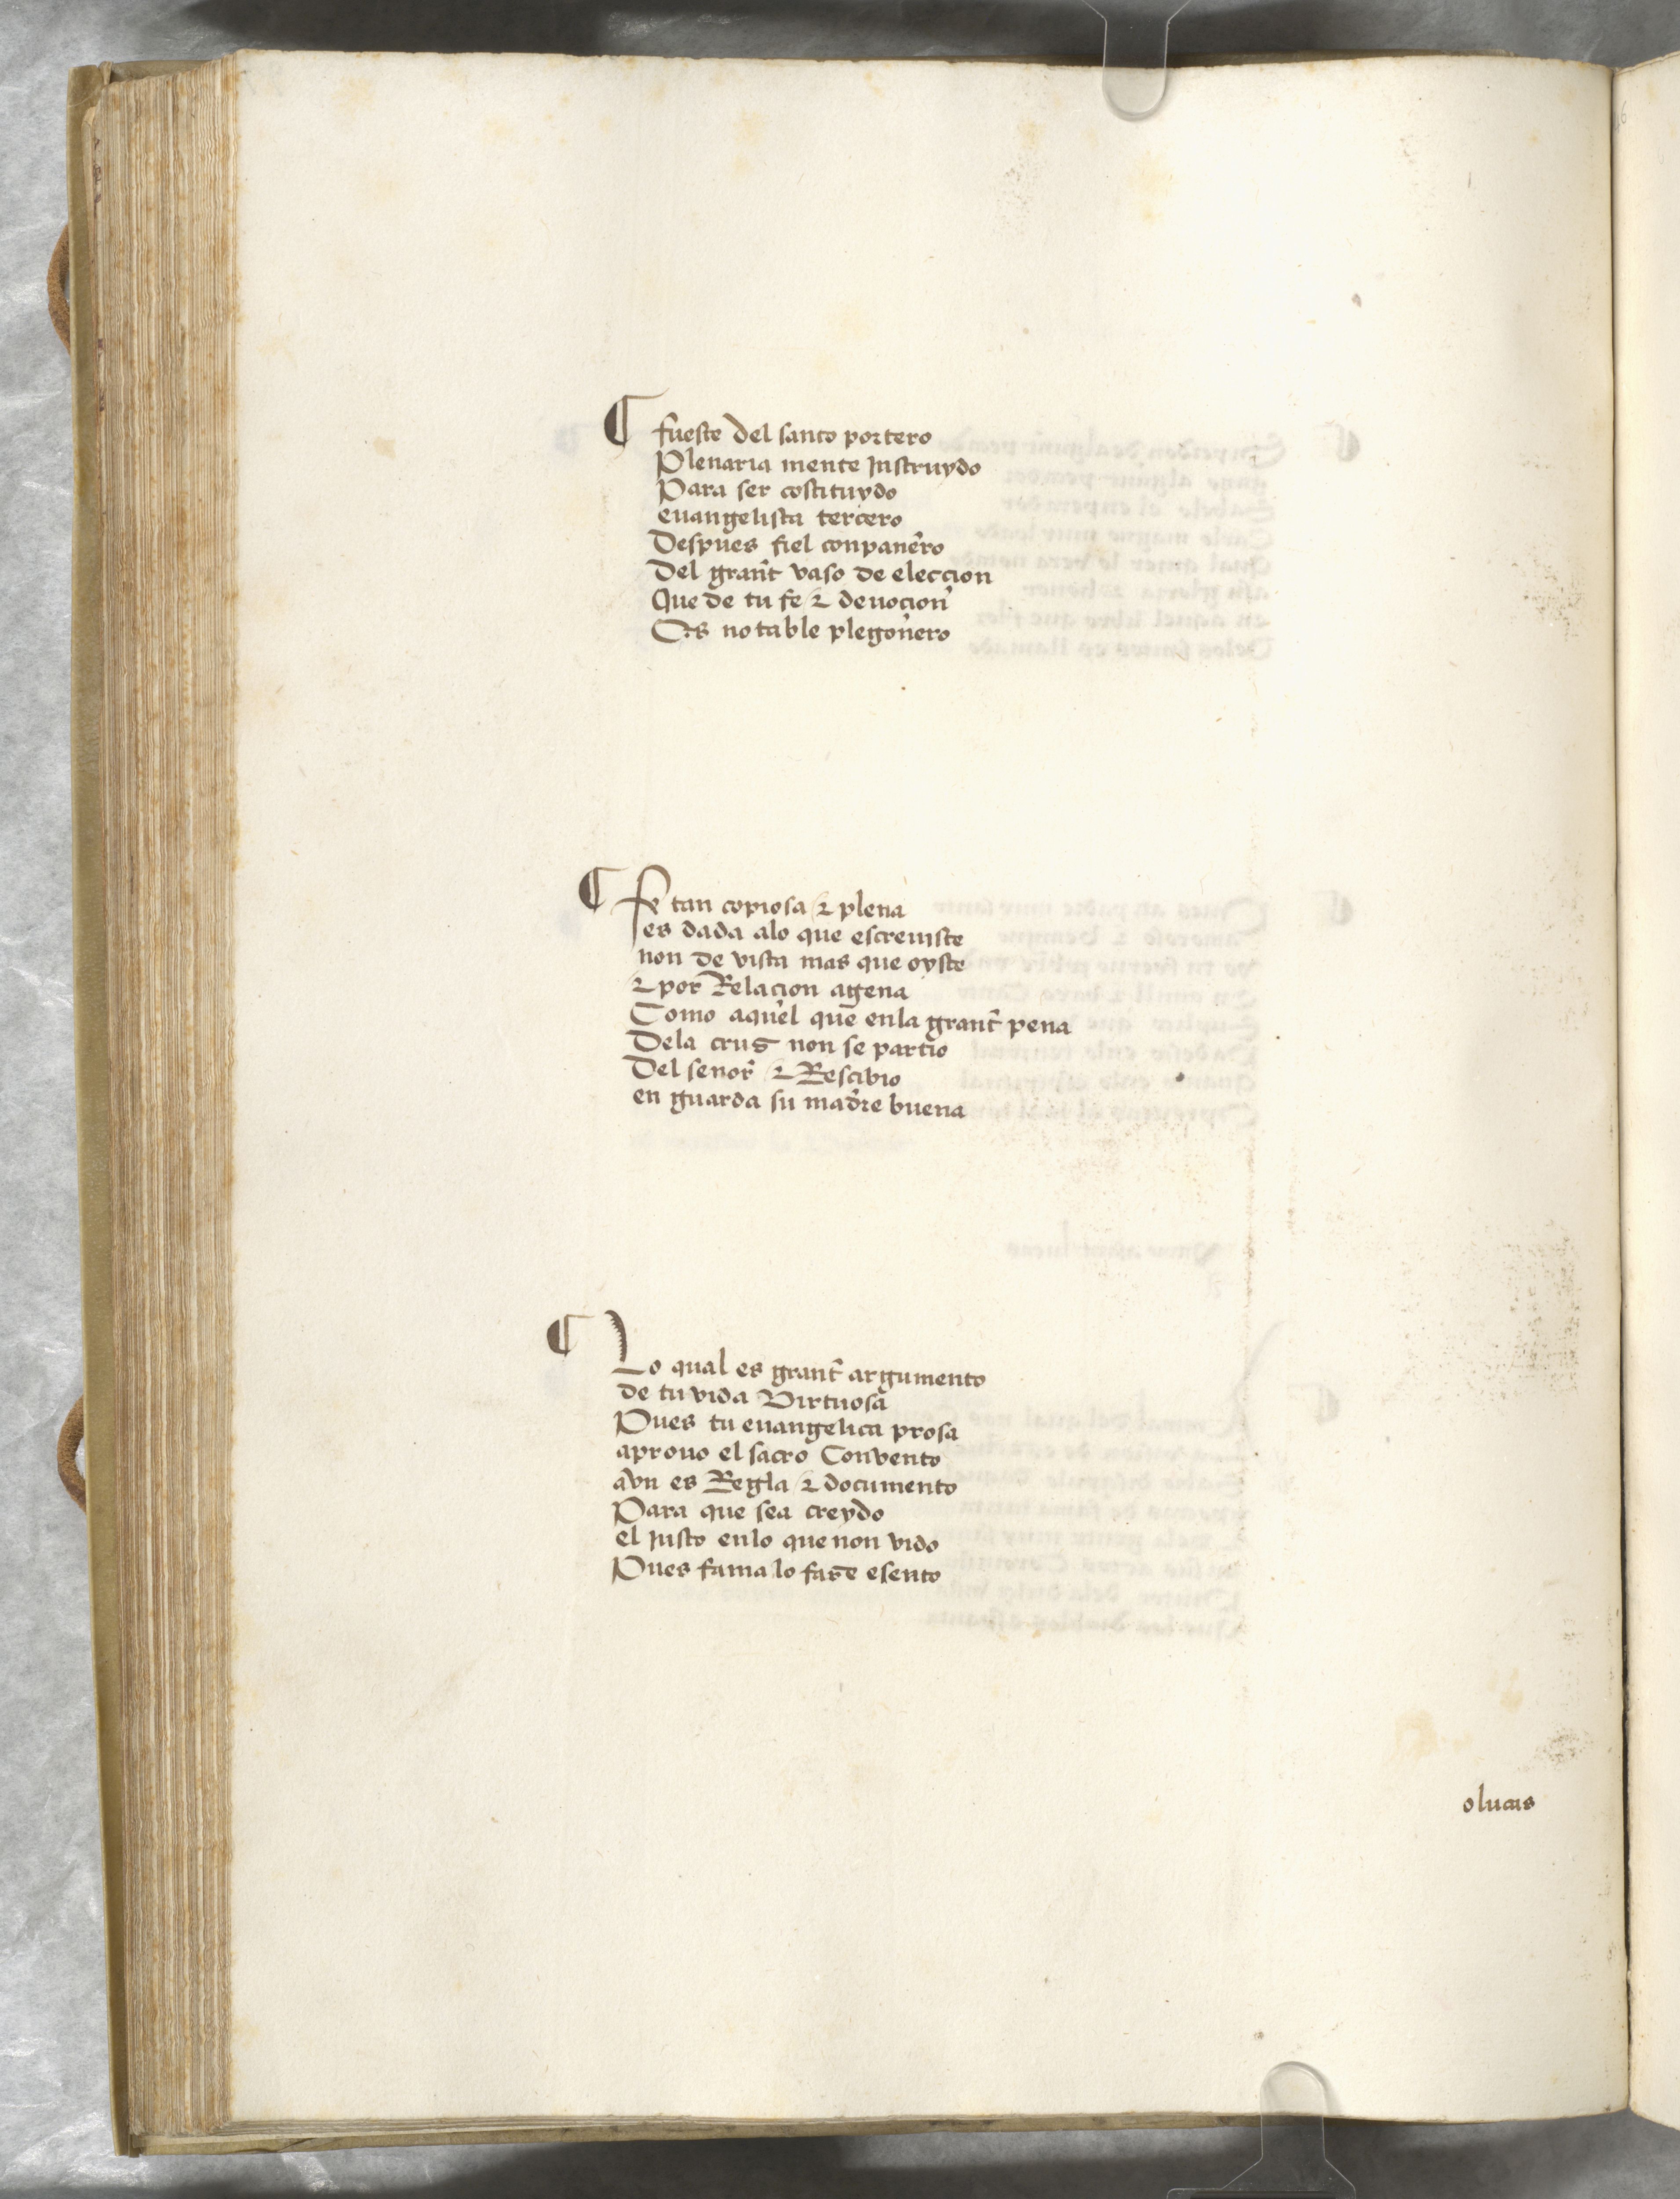 ¶ fueste del santo portero
Plenaria mente Instruydo
Para ser costituydo
euangelista tercero
Despues fiel conpanero
Del grant vaso de eleccion
Que de tu fe & deuocion
Es notable plegonero
¶ fe tan copiosa & plena
es dada alo que escreuiste
non de vista mas que oyste
& por Relacion agena
Como aquel que enla grant pena
Dela crus non se partio
Del senor & Rescibio
en guarda su madre buena
¶ Lo qual es grant argumento
de tu vida Virtuosa
Pues tu euangelica prosa
aprouo el sacro Convento
avn es Regla & documento
Para que sea creydo
el Justo enlo que non vido
Pues fama lo fase esento
o lucas